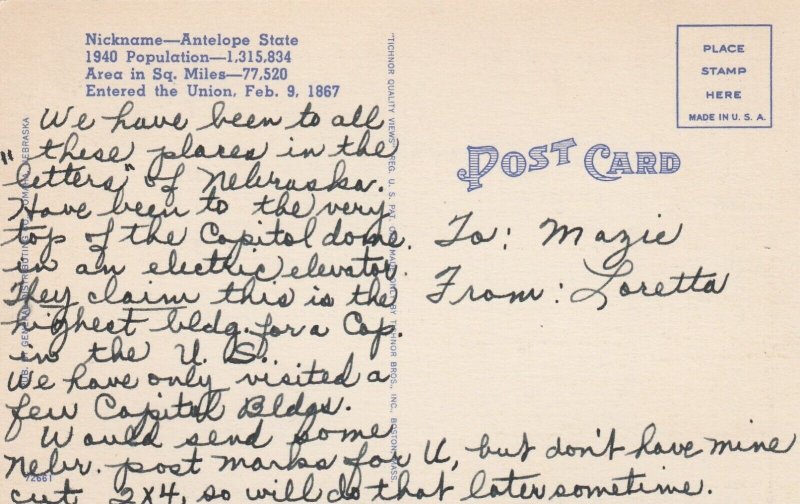 Nickname—Antelope State
1940 Population—1,315,834
Area in Sq. Miles—77,520
Entered the Union, Feb. 9, 1867
We have been to all
"these places in the
letters" of Nebraska.
Have been to the very
top of the Capitol dome.
in an electric elevator.
They claim this is the
highest bldg. for a Cap.
in the U. S.
We have only visited a
few Capitol Bldgs.
Would send some
Nebr. post marks for U, but don't have mine
cut 2x4, so will do that later sometime.
72661
"TICHNOR QUALITY VIEWS," REG. U. S. PAT. BY TICHNOR BROS., INC., BOSTON, MASS.
PLACE
STAMP
HERE
MADE IN U. S. A.
POST CARD
To: Mazie
From: Loretta